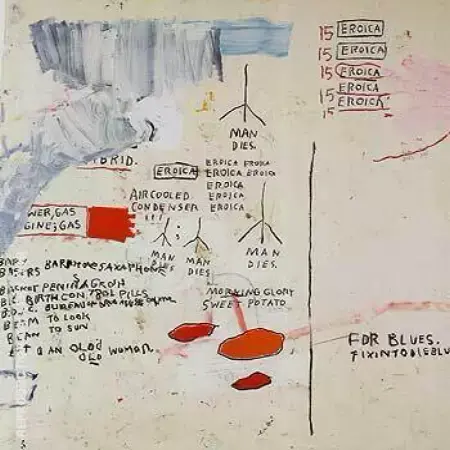 15 EROICA
15 EROICA
15 EROICA
15 EROICA
15 EROICA
MAN
DIES.
BRID.
EROICA
EROICA EROICA
EROICA EROICA
EROICA
EROICA
EROICA
AIR COOLED
CONDENSER
WER, GAS
GINE; GAS
MAN
DIES
MAN
DIES
MAN
DIES.
BARITONE SAXAPHONE
BIRTH CONTROL PILLS
BUREAU OF
BEAM TO LOOK
BEAN TO SUN
AN OLD
OLD WOMAN.
MORNING GLORY
SWEET POTATO
FOR BLUES.
FIXINTODIEBLU